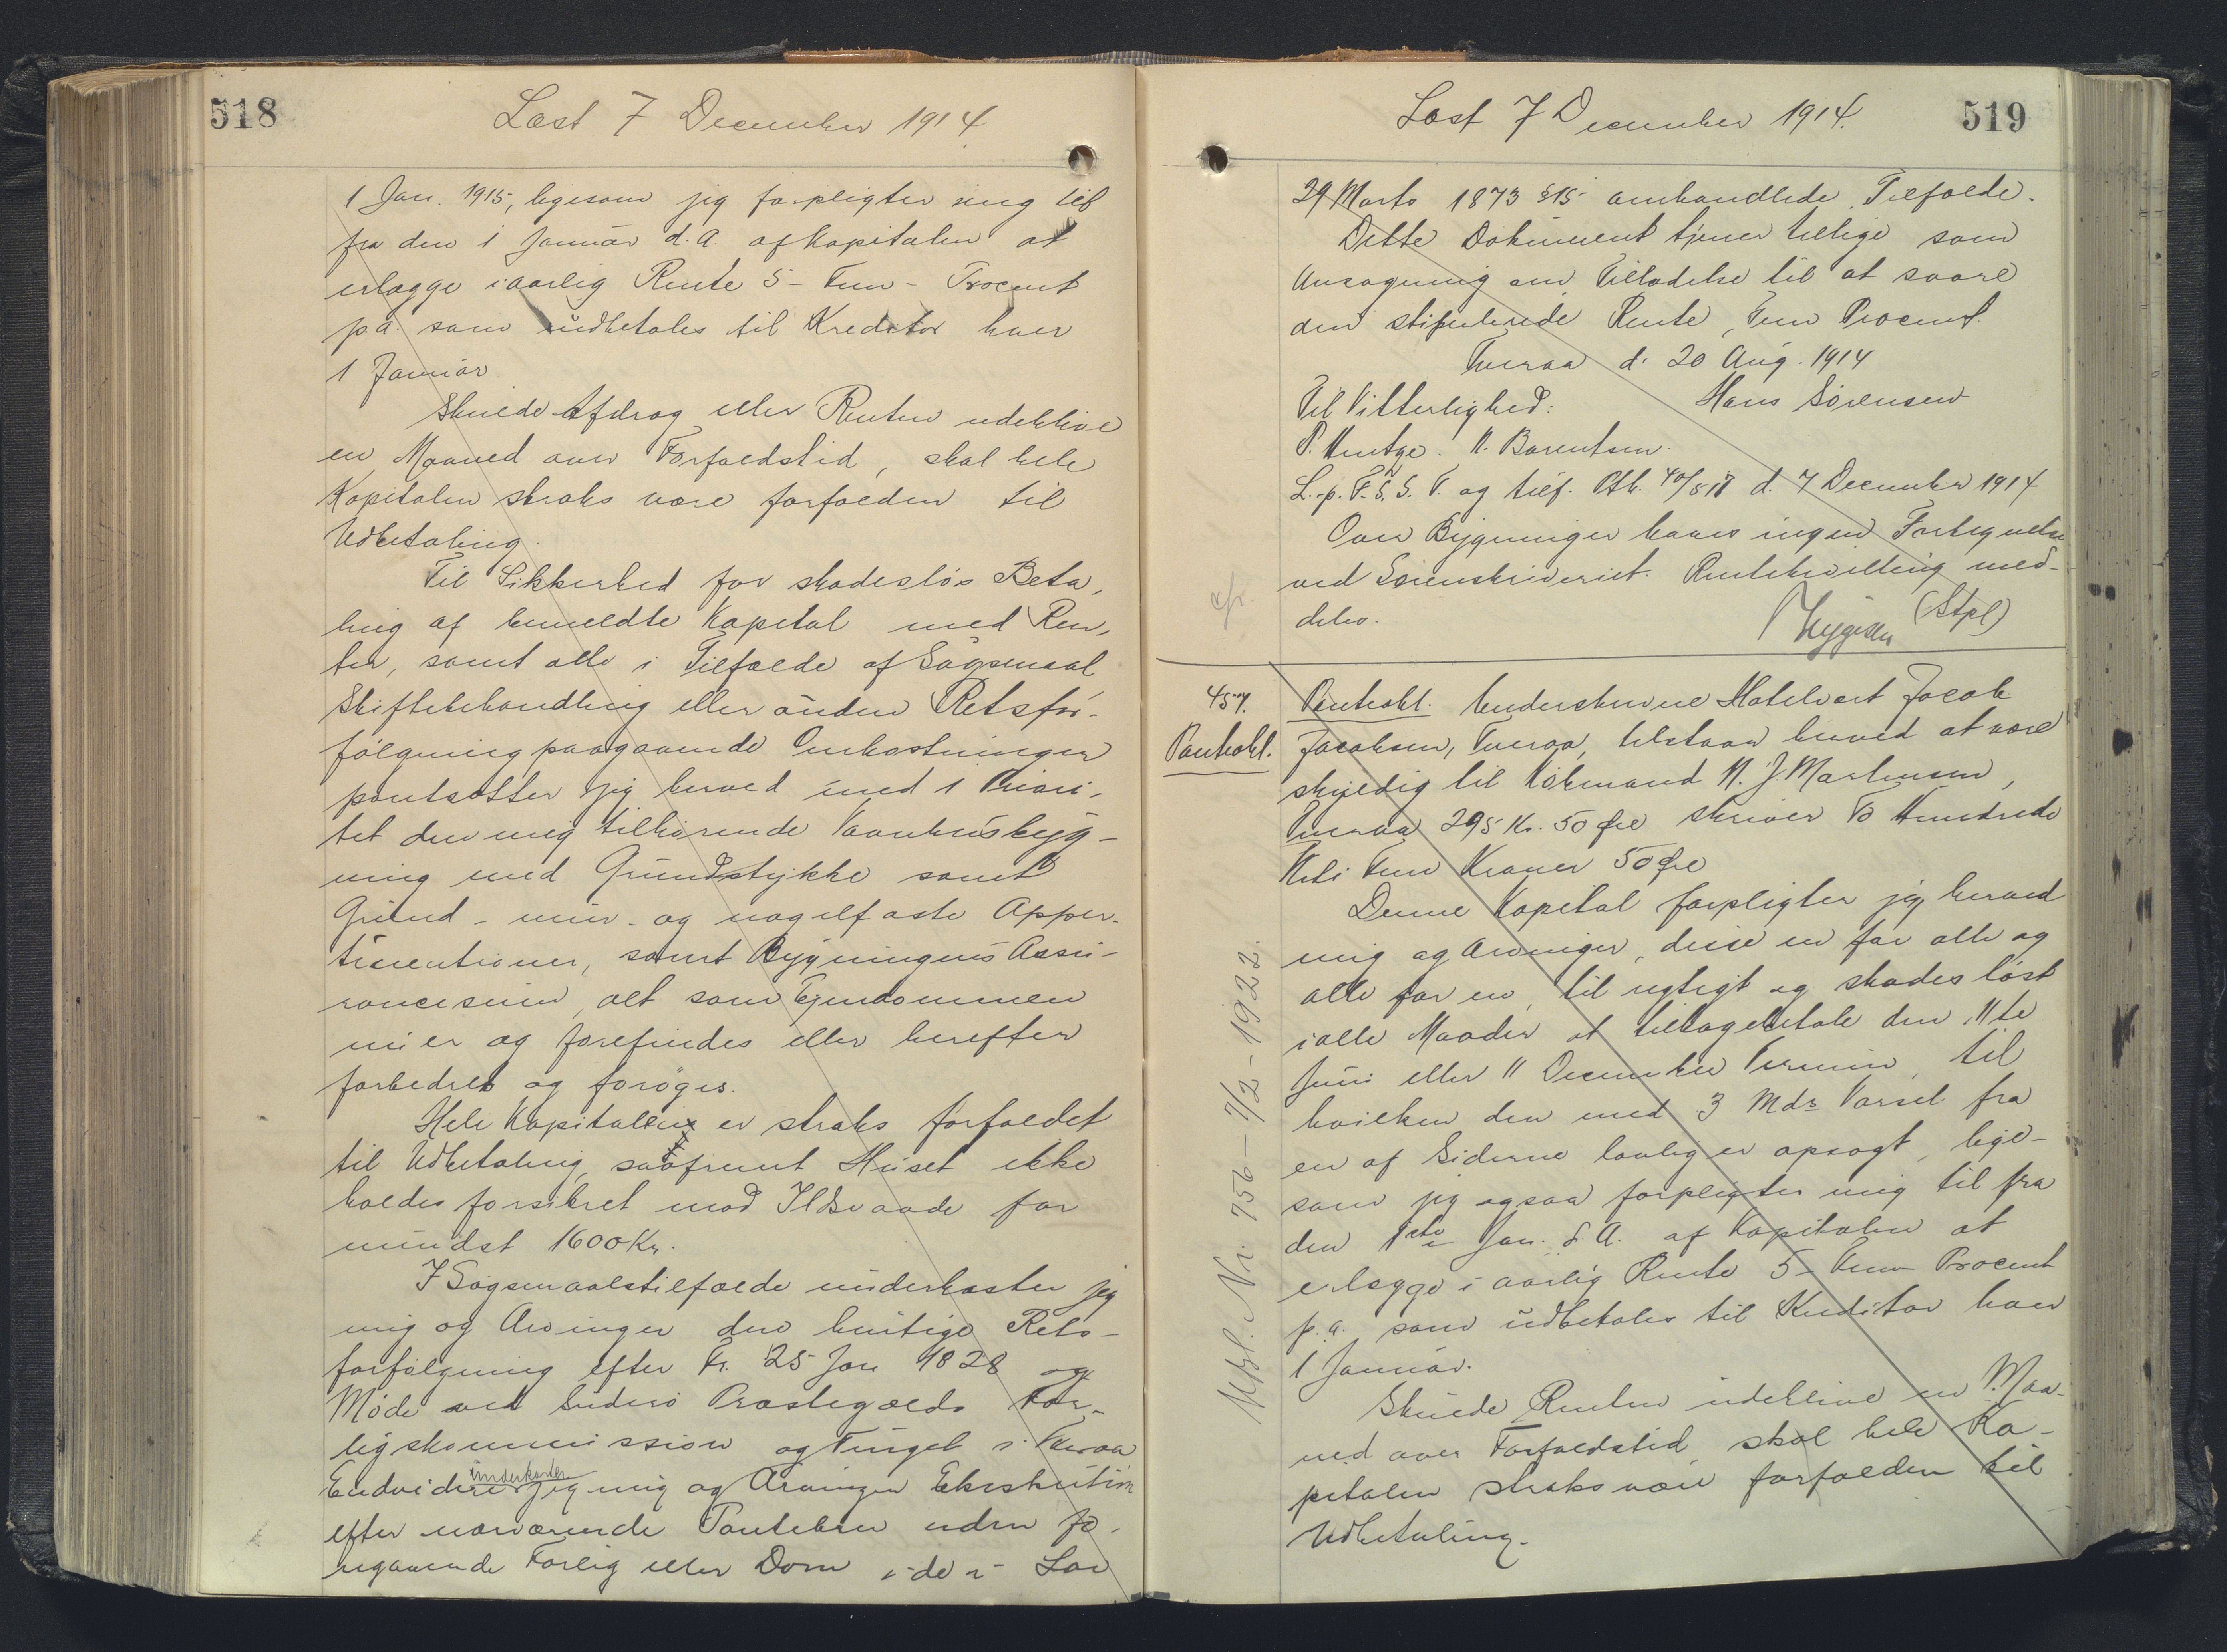 518
Læst 7 December 1914.
1 Jan. 1915, ligesom jeg forpligter mig til
fra den 1 Januar d. A. af Kapitalen at
erlægge i aarlig Rente 5 - Fem - Procent
p.a. som udbetales til Kreditor hver
1 Januar
Skulde Afdrag eller Renten udeblive
en Maaned over Forfaldstid, skal hele
Kapitalen straks være forfalden til
Udbetaling.
Til Sikkerhed for skadesløs Beta,
ling af bemeldte Kapital med Ren,
ter, samt alle i Tilfælde af Søgsmaal
Skiftebehandling eller anden Retsfor-
følgning paagaaende Omkostninger
pantsætter jeg herved med 1 Priori-
tet den mig tilhørende Vaanhusbyg-
ning med Grundstykke samt
Grund- mur- og nagelfaste Apper-
tinentioner, samt Bygningens Assu-
rancesum, alt som Ejendommen
nu er og forefindes eller herefter
forbedres og forøges.
Hele Kapitalen er straks forfaldet
til Udbetaling, saafremt Huset ikke
holdes forsikret mod Ildsvaade for
mindst 1600 Kr.
I Søgsmaalstilfælde underkaster jeg
mig og Arvinger den hurtige Rets-
forfølgning efter Fr. 25 Jan 1828 og
Møde ved Suderø Præstegælds For-
ligskommission og Tinget i Tveraa
Endvidere underkaster jeg mig og Arvinger Eksekution
efter nærværende Pantebrev uden fo-
regaaende Forlig eller Dom i de i Lov
519
Læst 7 December 1914.
29 Marts 1873 §15 omhandlede Tilfælde.
Dette Dokument tjener tillige som
Ansøgning om Tilladelse til at svare
den stipulerede Rente, Fem Procent.
Tveraa d. 20 Aug. 1914
Til Vitterlighed: Hans Sørensen
P. Hentze. N. Barentsen.
L. p. F. S. S. T. og tilf. Ptb. 40/518 d. 7 December 1914
Over Bygninger haves ingen Fortegnelse
ved Sorenskriveriet. Rentebevilling med-
deles. (Stpl)
457.
Panteobl.
Panteobl. Underskrevne Hotelvært Jacob
Jacobsen, Tveraa, tilstaar herved at være
skyldig til Købmand N. J. Mortensen,
Tveraa 295 Kr. 50 Øre skriver To Hundrede
Niti Fem Kroner 50 Øre
Denne Kapital forpligter jeg herved
mig og Arvinger, disse en for alle og
alle for en, til rigtigt og skadesløst
i alle Maader at tilbagebetale den 11te
Juni eller 11 December Termin, til
hvilken den med 3 Mdrs Varsel fra
en af Siderne lovlig er opsagt, lige-
som jeg ogsaa forpligter mig til fra
den 1ste Jan. d. A. af Kapitalen at
erlægge i aarlig Rente 5 - Fem - Procent
p.a. som udbetales til Kreditor hver
1 Januar.
Skulde Renten udeblive en Maa-
ned over Forfaldstid skal hele Ka-
pitalen straks være forfalden til
Udbetaling.
Nr. 756 - 7/2 - 1922.